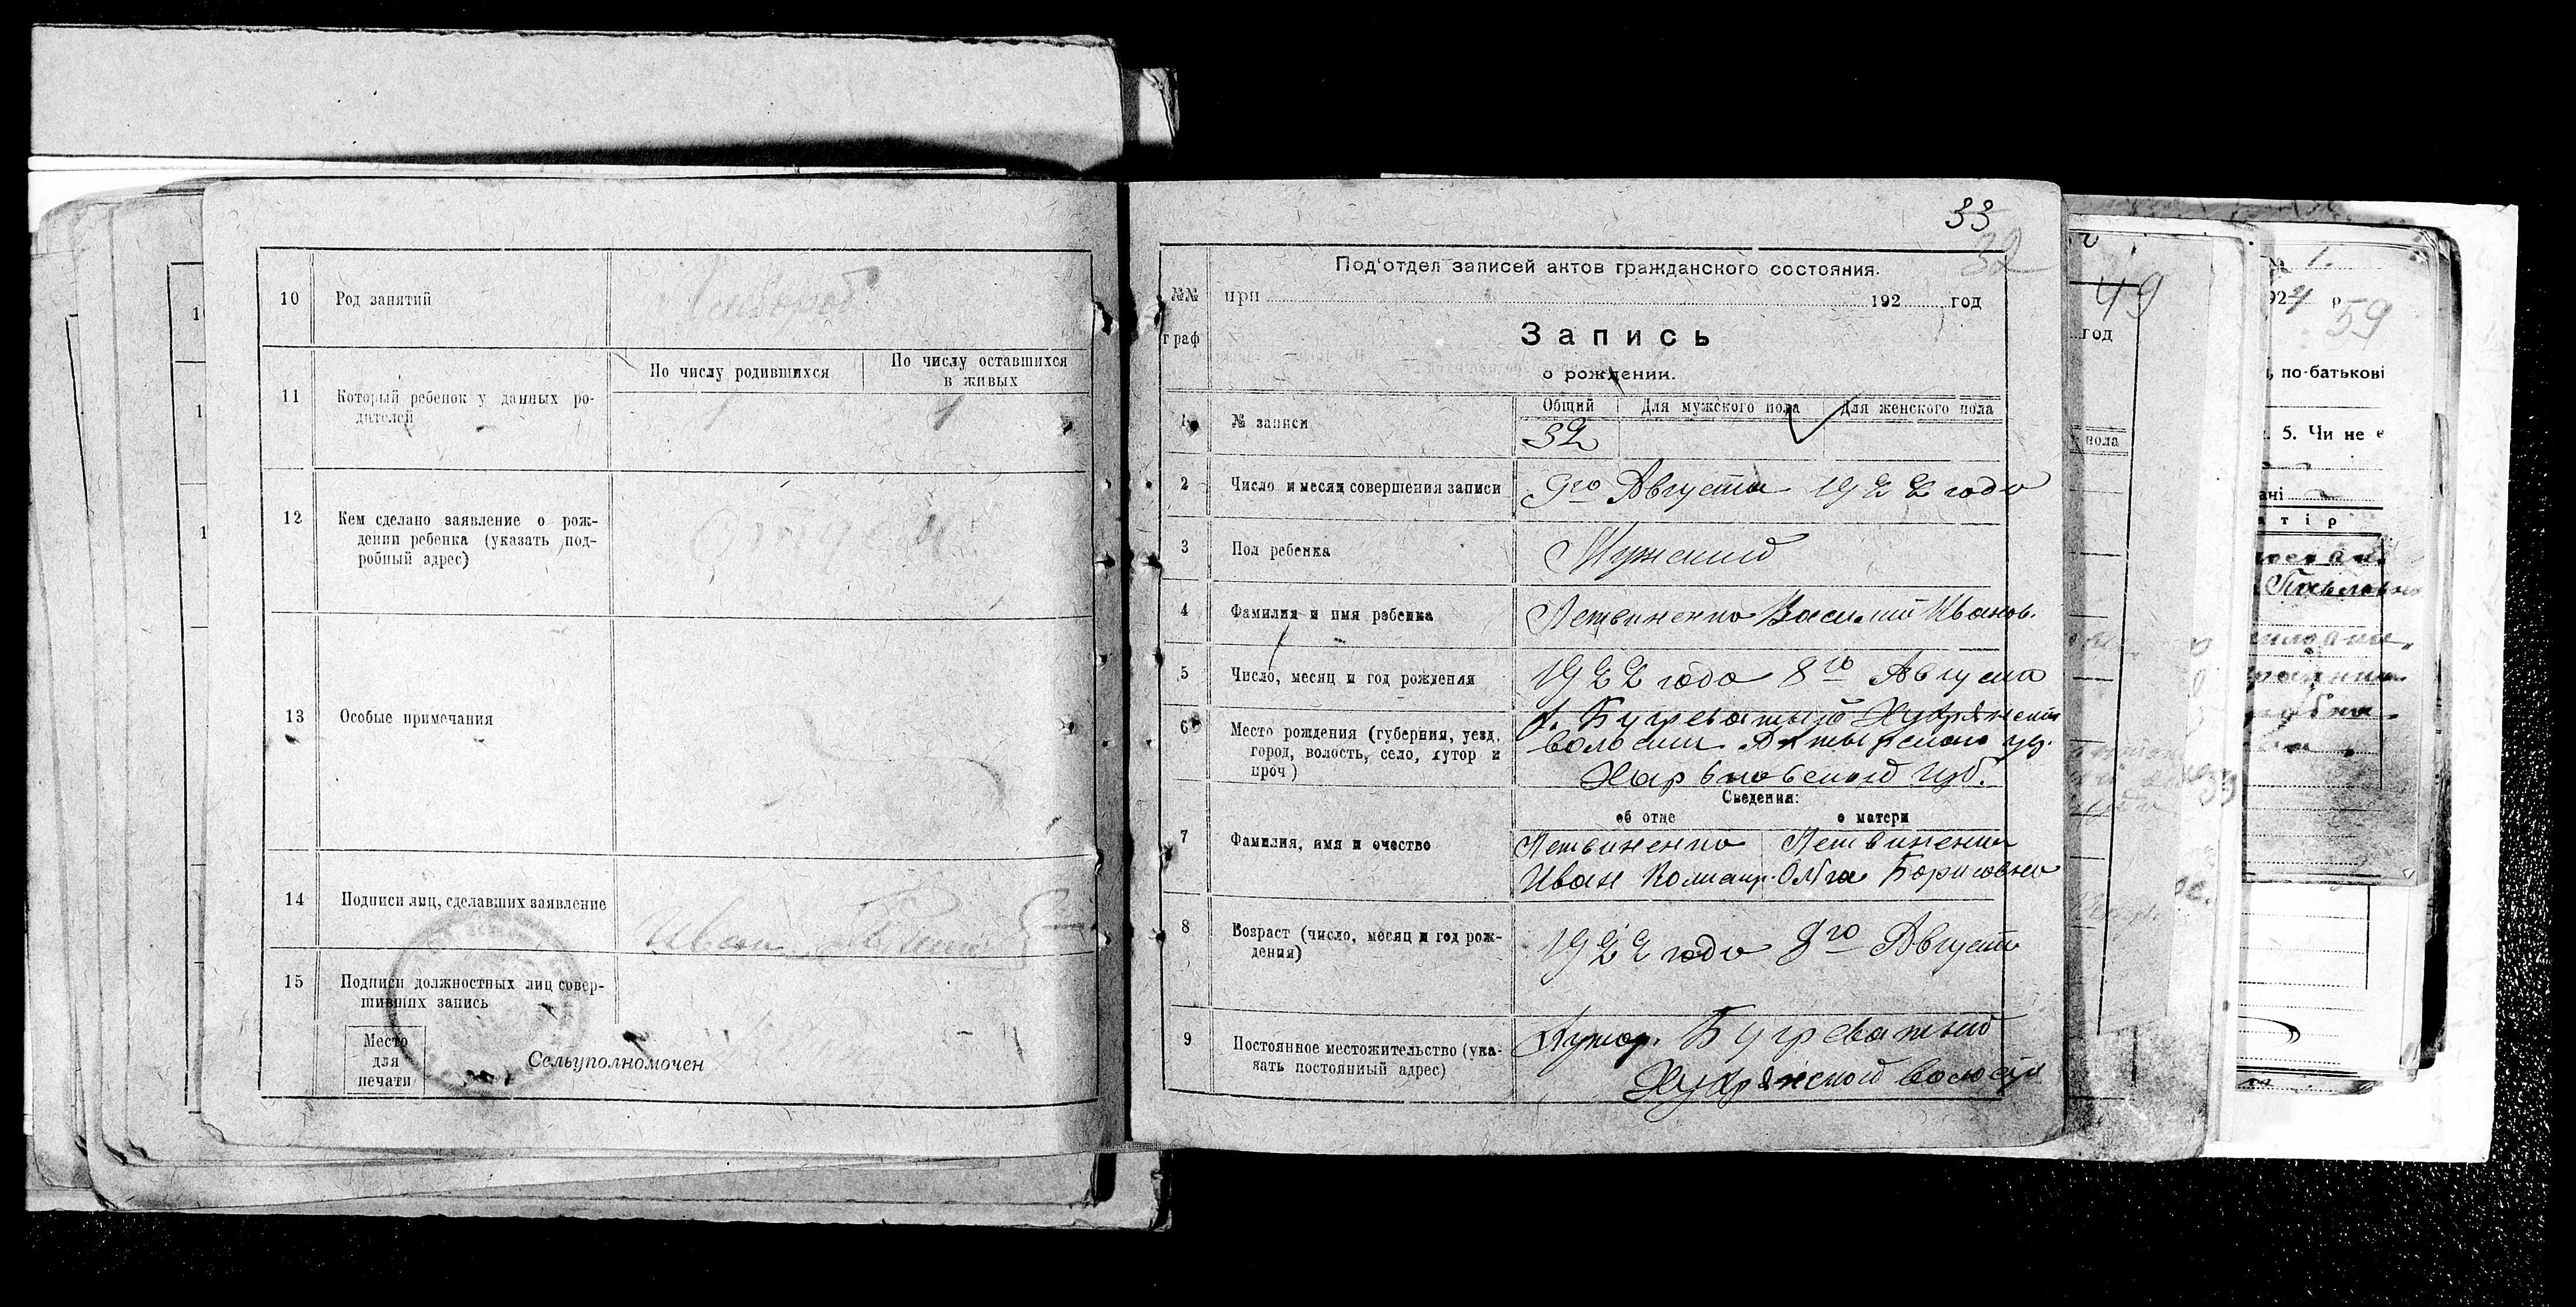 10 Род занятий Хлебороб
11 Который ребенок у данных ро-
дителей
По числу родившихся
По числу оставшихся
в живых
1 1
12 Кем сделано заявление о рож-
дении ребенка (указать под-
робный адрес)
Отцем
13 Особые примечания
14 Подписи лиц, сделавших заявление
Иван
15 Подписи должностных лиц совер-
шивших запись
Место
для
печати
Сельуполномочен
33
32
Под'отдел записей актов гражданского состояния.
№№
граф
при 192 год
Запись
о рождении.
1 № записи
Общий Для мужского пола Для женского пола
32
2 Число и месяц совершения записи 9го Августа 1922 года
3 Пол ребенка Мужский
4 Фамилия и имя ребенка Летвиненко Василий Иванов.
5 Число, месяц и год рождения 1922 года 8го Августа
6 Место рождения (губерния, уезд,
город, волость, село, хутор и
проч)
х. Бугреватый Хухрянской
волости Ахтырскаго уез.
Харьковской губ.
Сведения:
об отце о матери
7 Фамилия, имя и очество
Летвиненко Летвиненко
Иван Ольга Борисовна
8 Возраст (число, месяц и год рож-
дения)
1922 года 8го Августа
9 Постоянное местожительство (ука-
зать постоянный адрес)
Хутор. Бугреватый
Хухрянской волости
49
год
пола
1.
1924 р
59
по-батькові
5. Чи не є